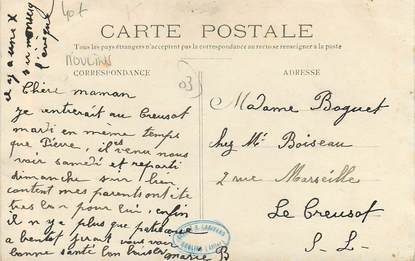 40f
CARTE POSTALE
Tous les pays étrangers n'acceptent pas la correspondance au recto se renseigner à la poste
MOULINS
CORRESPONDANCE
ADRESSE
03
Chère maman
je rentrerait au Creusot
mardi en même temps
que Pierre, il es venu nous
voir samedi et reparti
dimanche soir bien
content mes parents ont ite
tres bon pour lui, enfin
il n y a plus que patience
a bentot jirait vous voir
bonne santé bon baiser
marie B
Madame Boguet
chez Mr Boiseau
2 rue Marseille
Le Creusot
S. L.